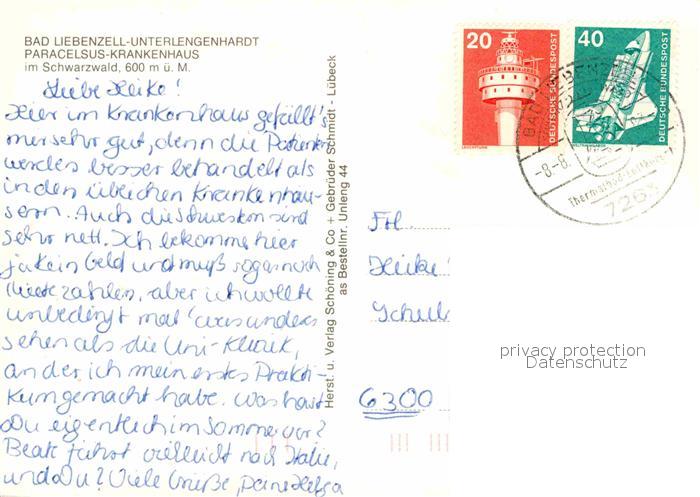 BAD LIEBENZELL-UNTERLENGENHARDT
PARACELSUS-KRANKENHAUS
im Schwarzwald, 600 m ü. M.
Liebe Heike!
Hier im Krankenhaus gefällt's
mir sehr gut, denn die Patienten
werden besser behandelt als
in den üblichen Krankenhäu-
sern. Auch die Schwestern sind
sehr nett. Ich bekomme hier
ja kein Geld und muß sogar noch
Miete zahlen, aber ich wollte
unbedingt mal 'was anders
sehen als die Uni-Klinik,
an der ich mein erstes Prakti-
kum gemacht habe. Was hast
Du eigentlich im Sommer vor?
Beate fährt vielleicht nach Italie,
und Du? Viele Grüße, Deine Helga
Herst. u. Verlag Schöning & Co + Gebrüder Schmidt - Lübeck
as Bestellnr. Unleng 44
20
DEUTSCHE BUNDESPOST
LEUCHTTURM
40
DEUTSCHE BUNDESPOST
BAD LIEBENZELL
-8.-8.
7263
Frl.
Heike
Schul
6300
privacy protection
Datenschutz